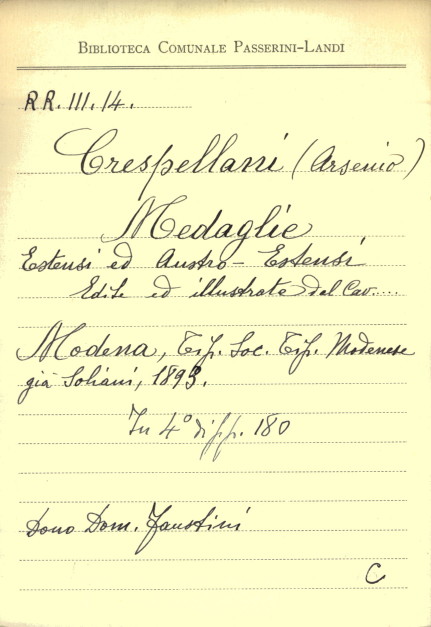 BIBLIOTECA COMUNALE PASSERINI-LANDI
RR. III. 14.
Crespellani (Arsenio)
Medaglie
Estensi ed Austro-Estensi
Edite ed illustrate dal Cav....
Modena, Tip. Soc. Tip. Modenese
già Soliani, 1893.
In 4° di pp. 180
Dono Dom. Faustini
C